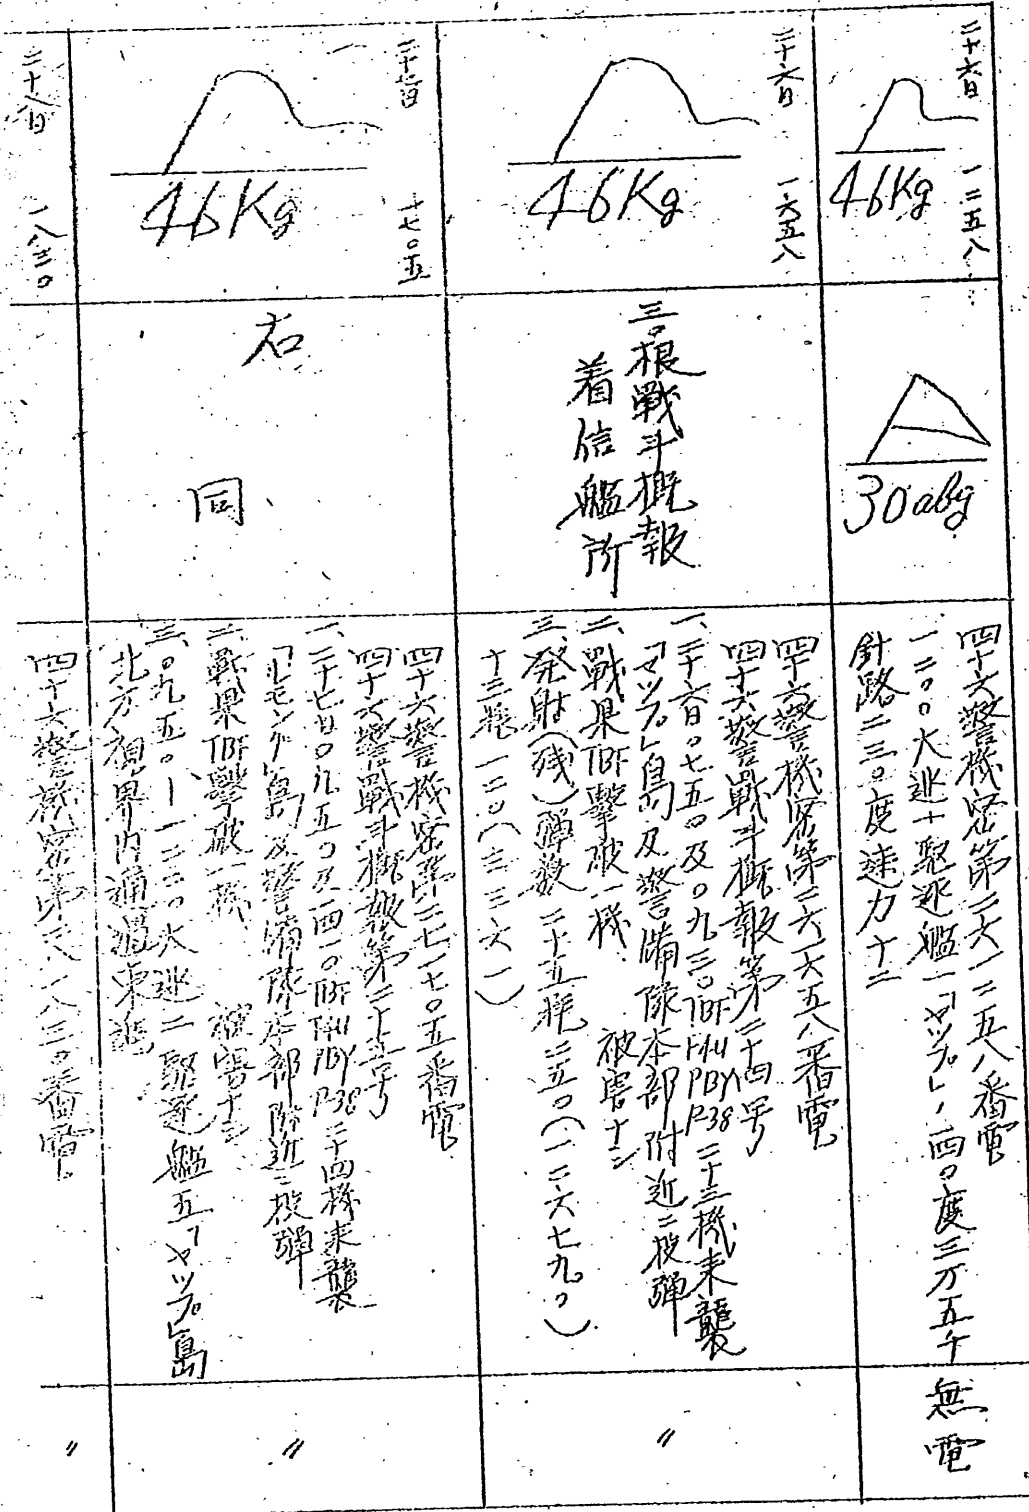 二十六日　一二五八
46Kg
30abg
四十六警機密第二六一二五八番電
一二〇〇大巡十駆逐艦一「ヤップ」ノ四〇度三万五千
針路二三〇度速力十二
無電
二十六日　一六五八
46Kg
三〇根戦斗概報
着信艦所
四十六警機密第二六一六五八番電
四十六警戦斗概報第二十四号
一、二十六日〇七五〇及〇九三〇TBF F4U PBY P-38二十三機来襲
「マップ」島及警備隊本部附近ニ投弾
二、戦果TBF撃破一機　被害ナシ
三、発射(残)弾数二十五粍二五〇(一二六七九〇)
十三粍一二〇(三三六一)
〃
一七〇五
46Kg
右
同
四十六警機密第二七一七〇五番電
四十六警戦斗概報第二十五号
一、二十七日〇九五〇及一四一〇TBF F4U PBY P-38二十四機来襲
島及警備隊本部附近ニ投弾
二、戦果TBF撃破一機　被害ナシ
三、〇九五〇―一二三〇大巡二駆逐艦五「ヤップ」島
北方視界内通過東進
〃
二十八日　一八三〇
四十六警機密第二八一八三〇番電
〃